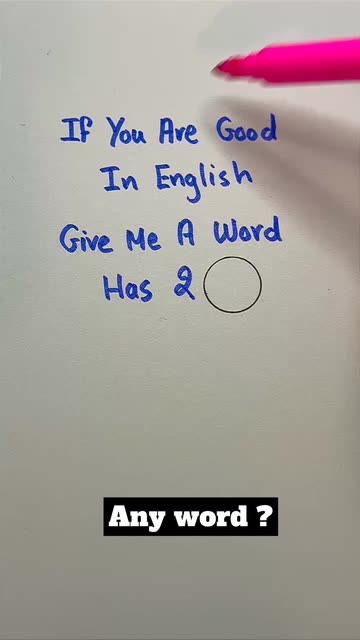 If You Are Good
In English
Give Me A Word
Has 2
Any word ?